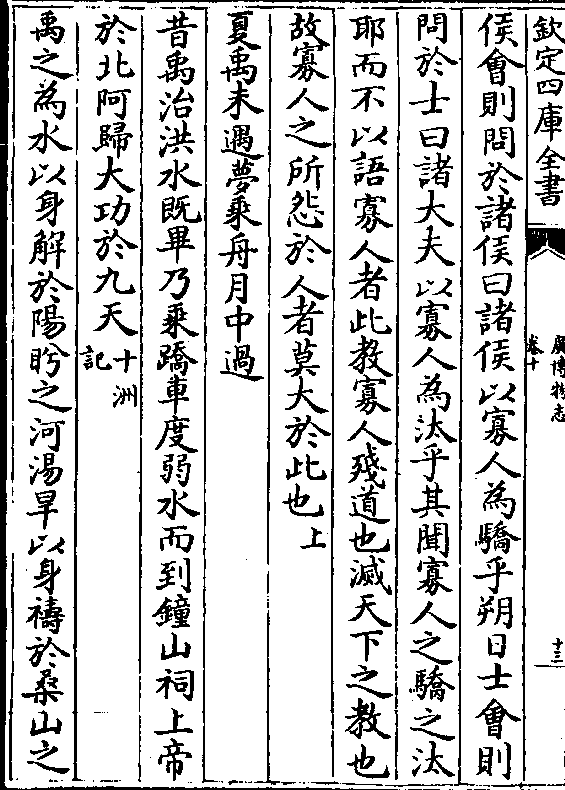 欽定四庫全書
廣博物志
卷十
十三
侯會則問於諸侯曰諸侯以寡人為驕乎朔日士會則
問於士曰諸大夫以寡人為汰乎其聞寡人之驕之汰
耶而不以語寡人者此教寡人殘道也滅天下之教也
故寡人之所怨於人者莫大於此也上
夏禹未遇夢乘舟月中過
昔禹治洪水既畢乃乘蹻車度弱水而到鐘山祠上帝
於北阿歸大功於九天十洲記
禹之為水以身解於陽盻之河湯旱以身禱於桑山之